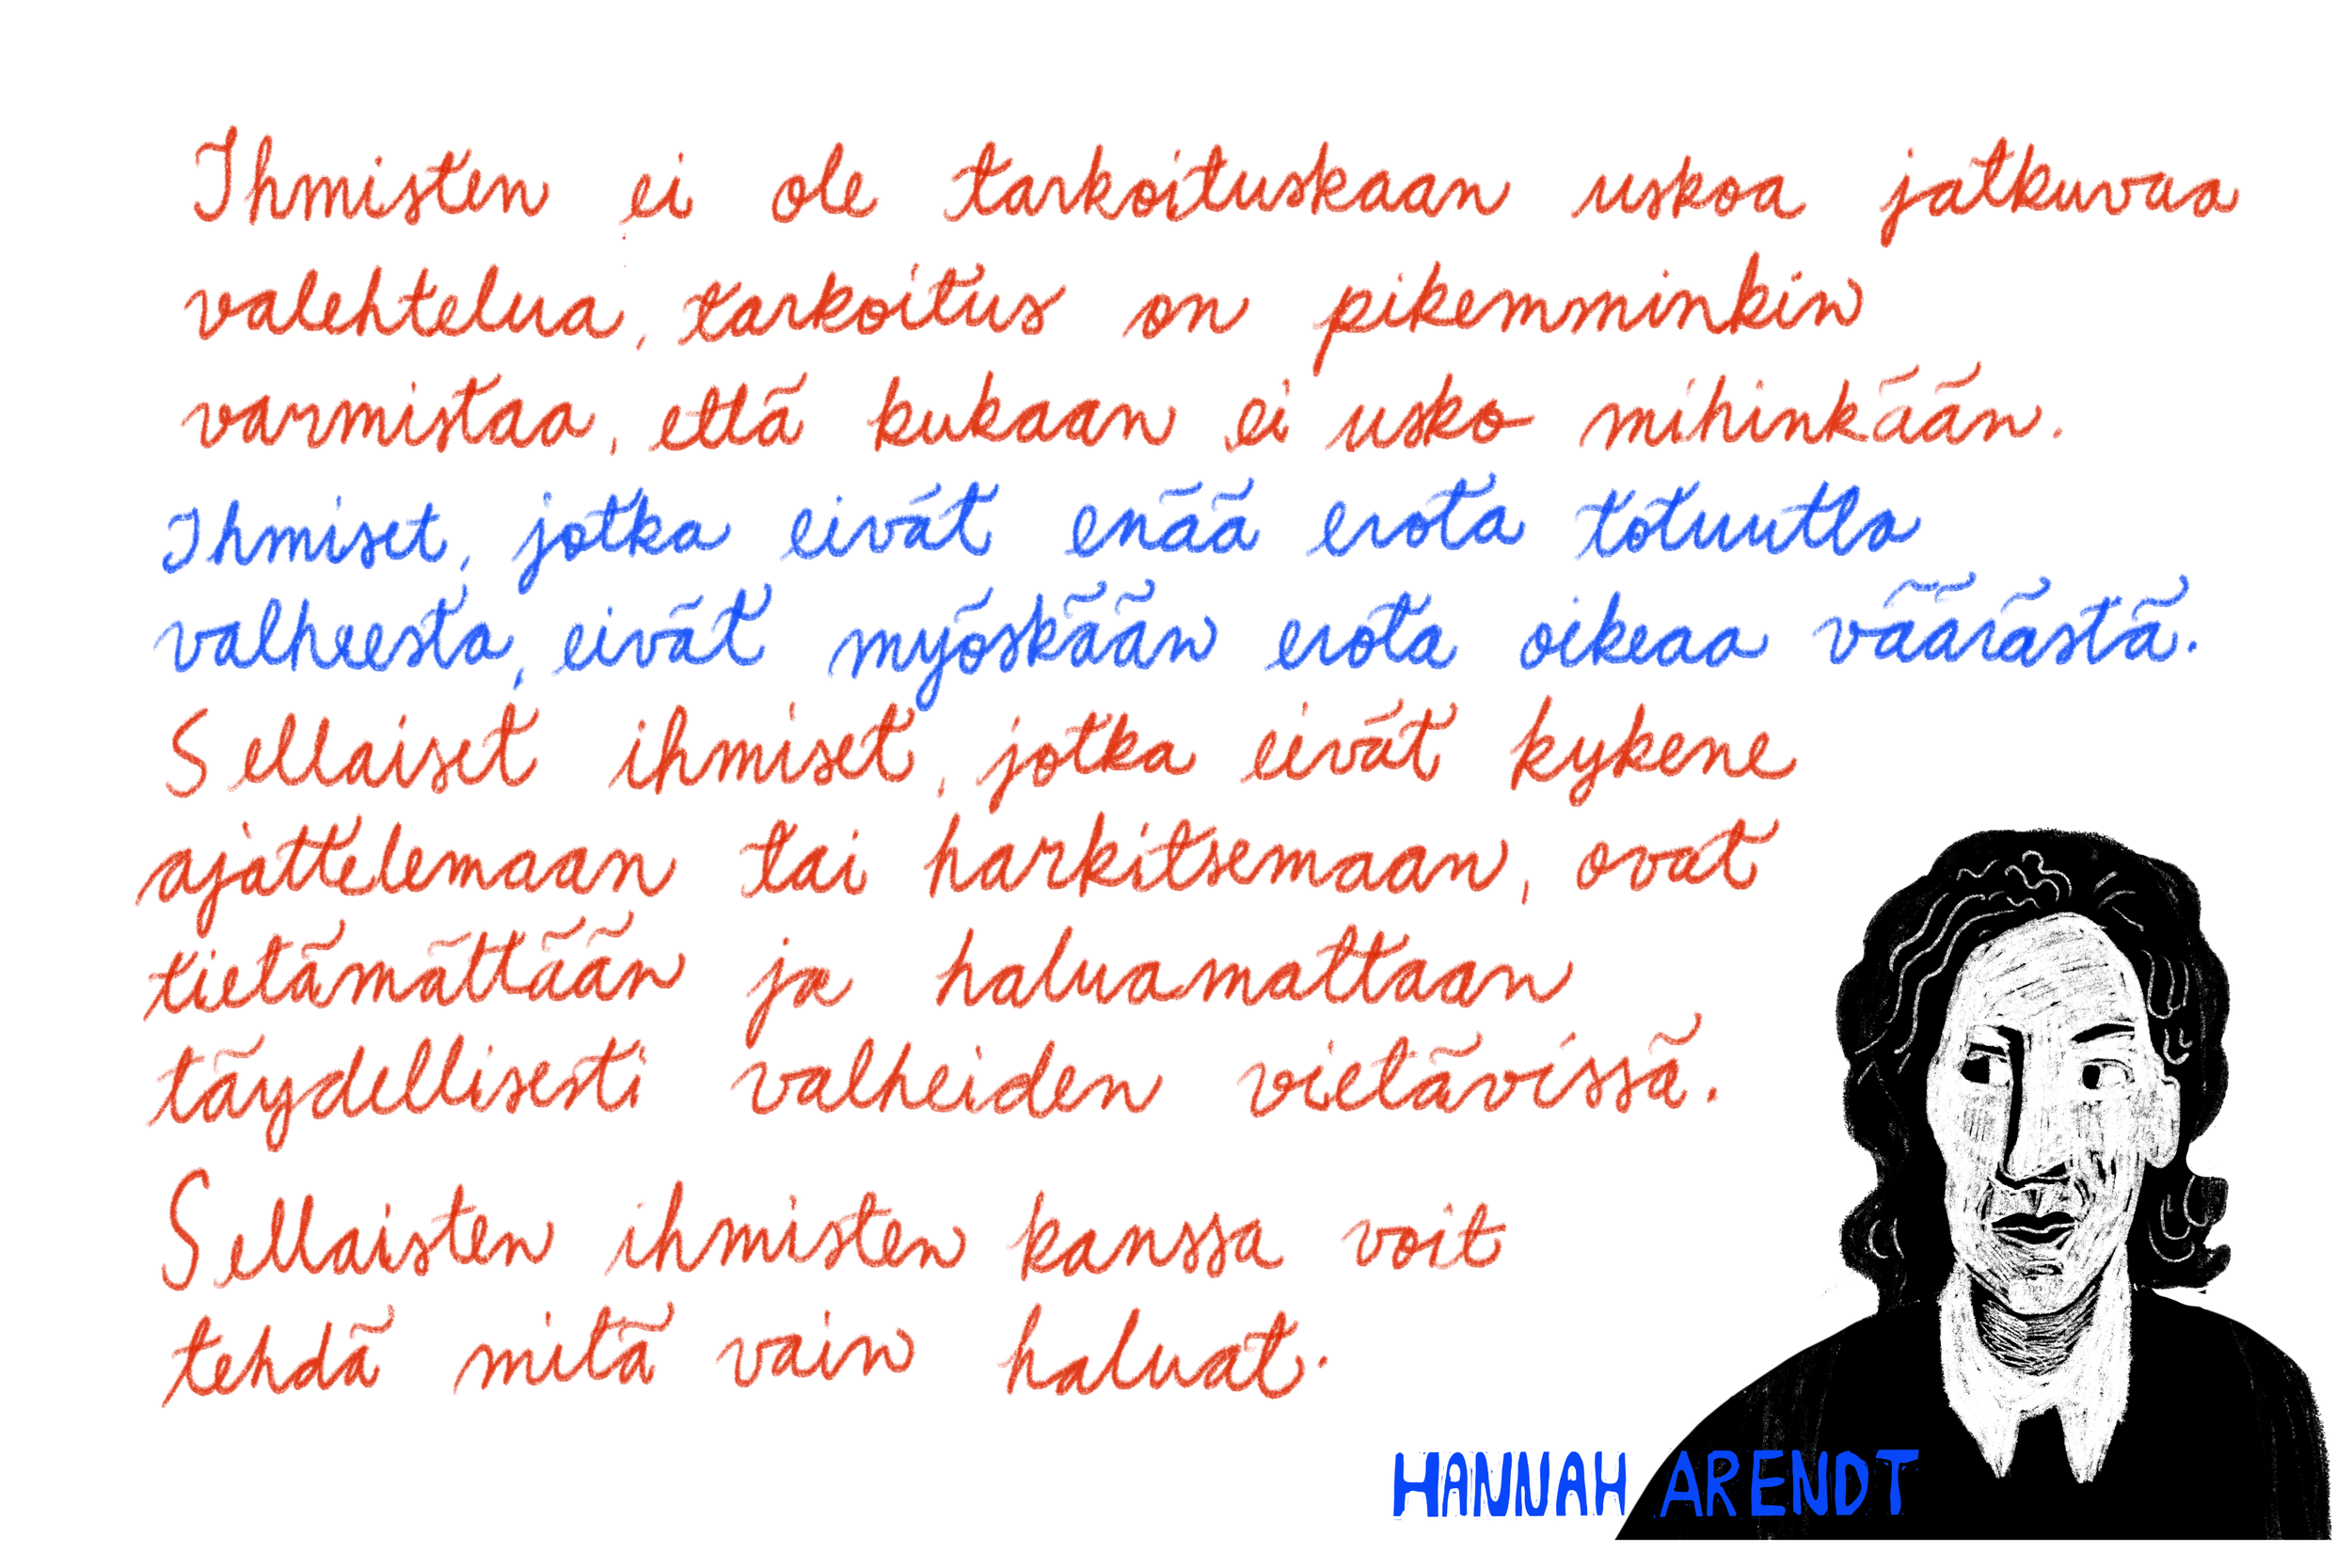 Ihmisten ei ole tarkoituskaan uskoa jatkuvaa
valehtelua, tarkoitus on pikemminkin
varmistaa, että kukaan ei usko mihinkään.
Ihmiset, jotka eivät enää erota totuutta
valheesta, eivät myöskään erota oikeaa väärästä.
Sellaiset ihmiset, jotka eivät kykene
ajattelemaan tai harkitsemaan, ovat
tietämättään ja haluamattaan
täydellisesti valheiden vietävissä.
Sellaisten ihmisten kanssa voit
tehdä mitä vain haluat.
HANNAH ARENDT